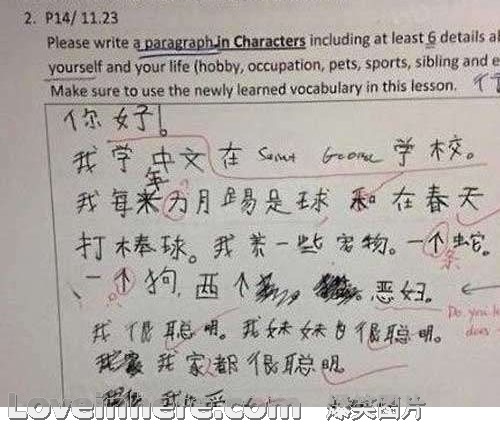 2. P14/ 11.23
Please write a paragraph in Characters including at least 6 details a
yourself and your life (hobby, occupation, pets, sports, sibling and e
Make sure to use the newly learned vocabulary in this lesson.
你好!
我学中文在 Saint George 学校。
年
我每来为月踢是球和在春天
打棒球。我养一些宠物。一个蛇。
条
一个狗,两个 恶好。
Do you
does
我很聪明。我妹妹也很聪明。
我家都很聪明。
我
Loveinhere.com 爆笑图片